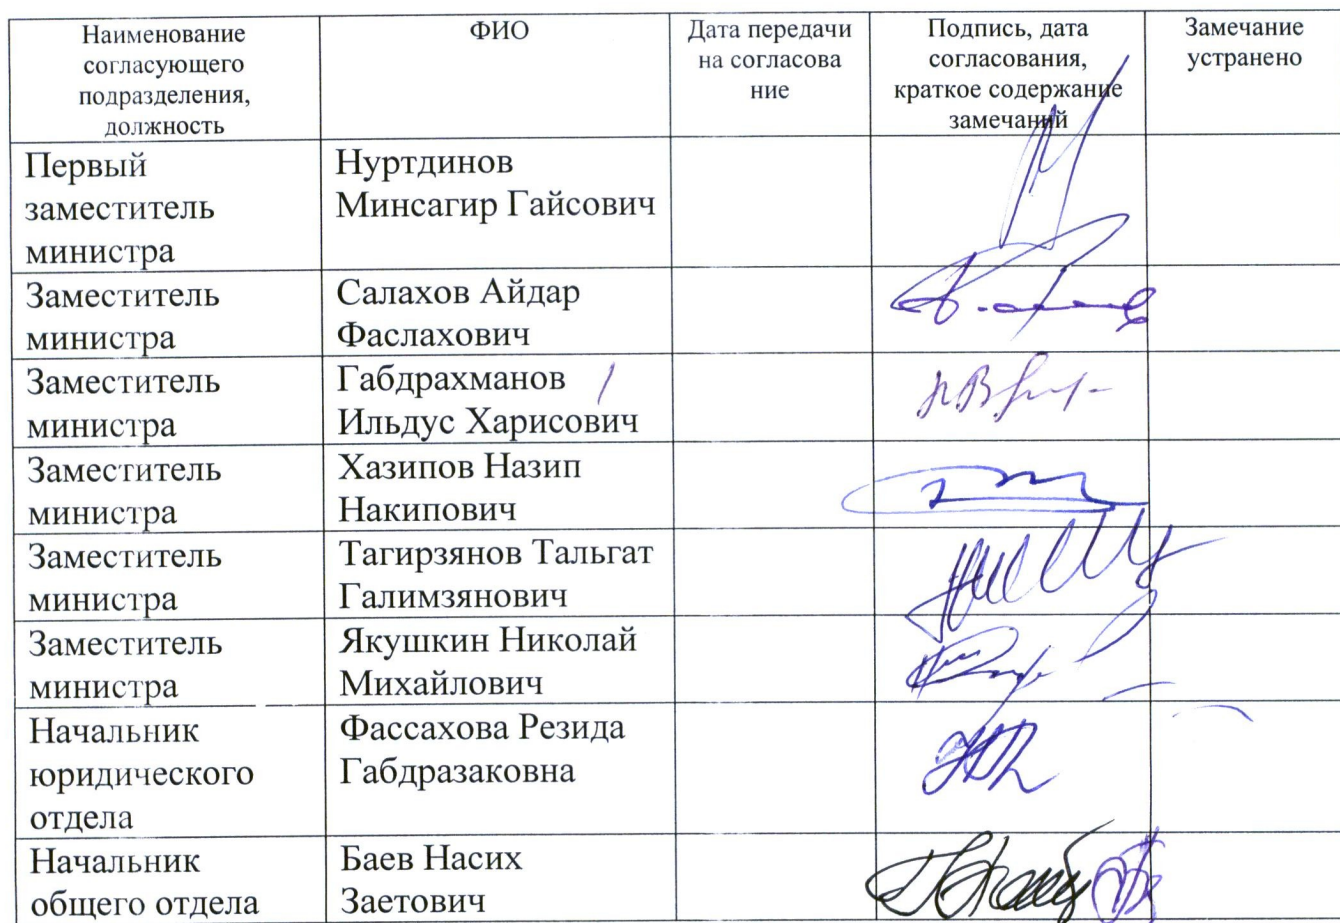 Наименование
согласующего
подразделения,
должность
ФИО
Дата передачи
на согласова
ние
Подпись, дата
согласования,
краткое содержание
замечаний
Замечание
устранено
Первый
заместитель
министра
Нуртдинов
Минсагир Гайсович
Заместитель
министра
Салахов Айдар
Фаслахович
Заместитель
министра
Габдрахманов
Ильдус Харисович
Заместитель
министра
Хазипов Назип
Накипович
Заместитель
министра
Тагирзянов Тальгат
Галимзянович
Заместитель
министра
Якушкин Николай
Михайлович
Начальник
юридического
отдела
Фассахова Резида
Габдразаковна
Начальник
общего отдела
Баев Насих
Заетович